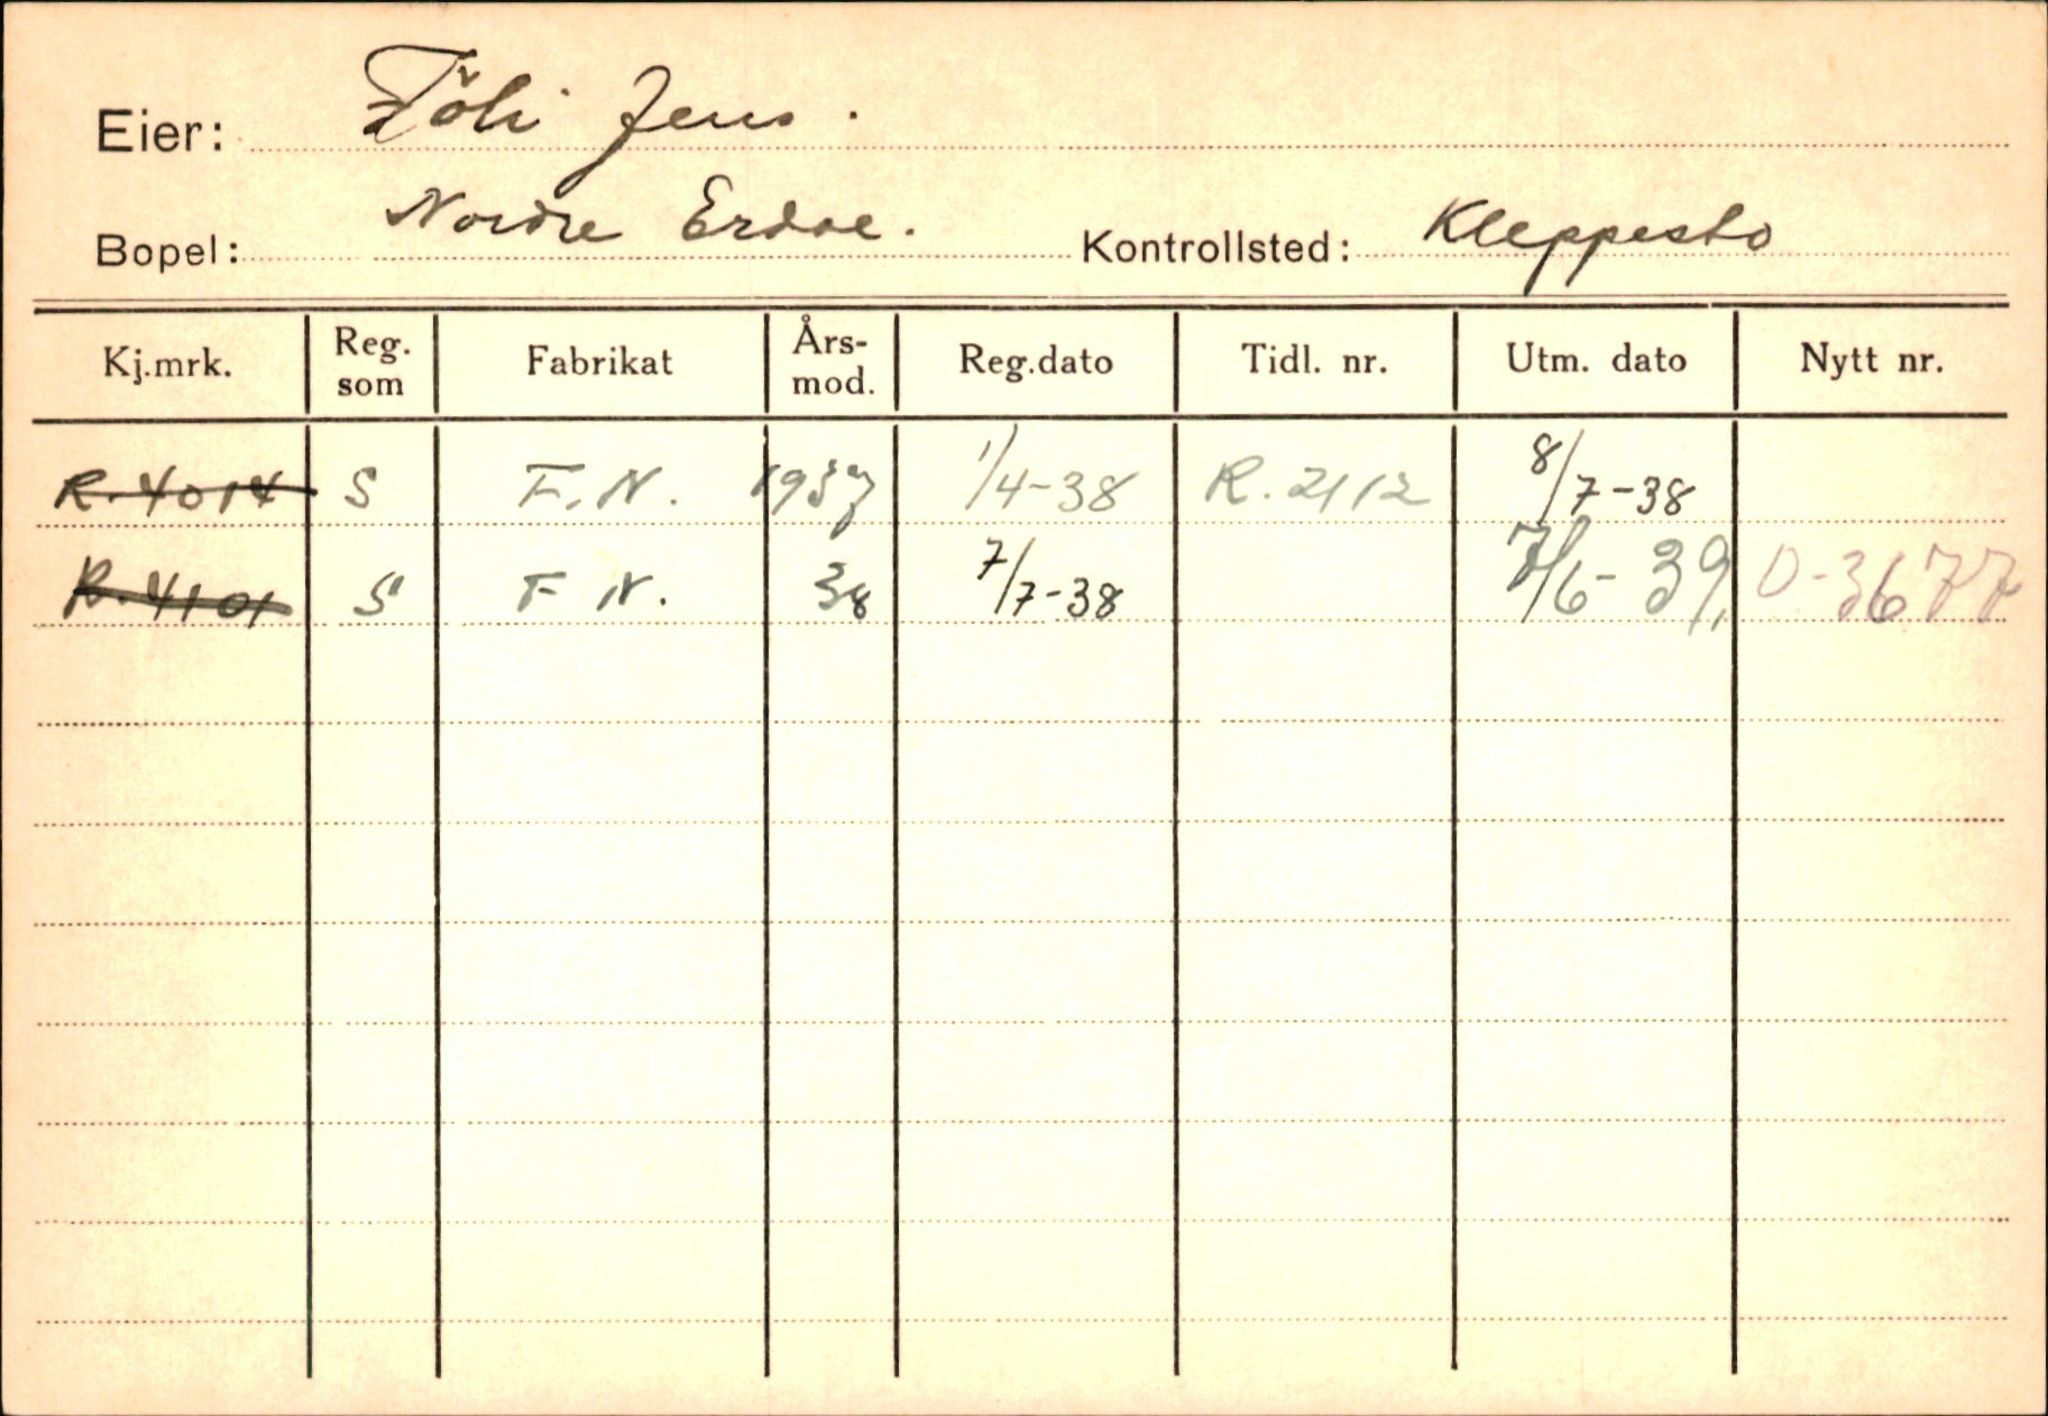 Eier: Töli Jens.
Bopel: Nordre Erdae. Kontrollsted: Kleppestø
Kj.mrk. Reg. som Fabrikat Års-mod. Reg.dato Tidl. nr. Utm. dato Nytt nr.
R.4014 S F.N. 1937 1/4-38 R.2112 8/7-38
R.4101 S F N. 38 7/7-38 7/6-39, O-3677